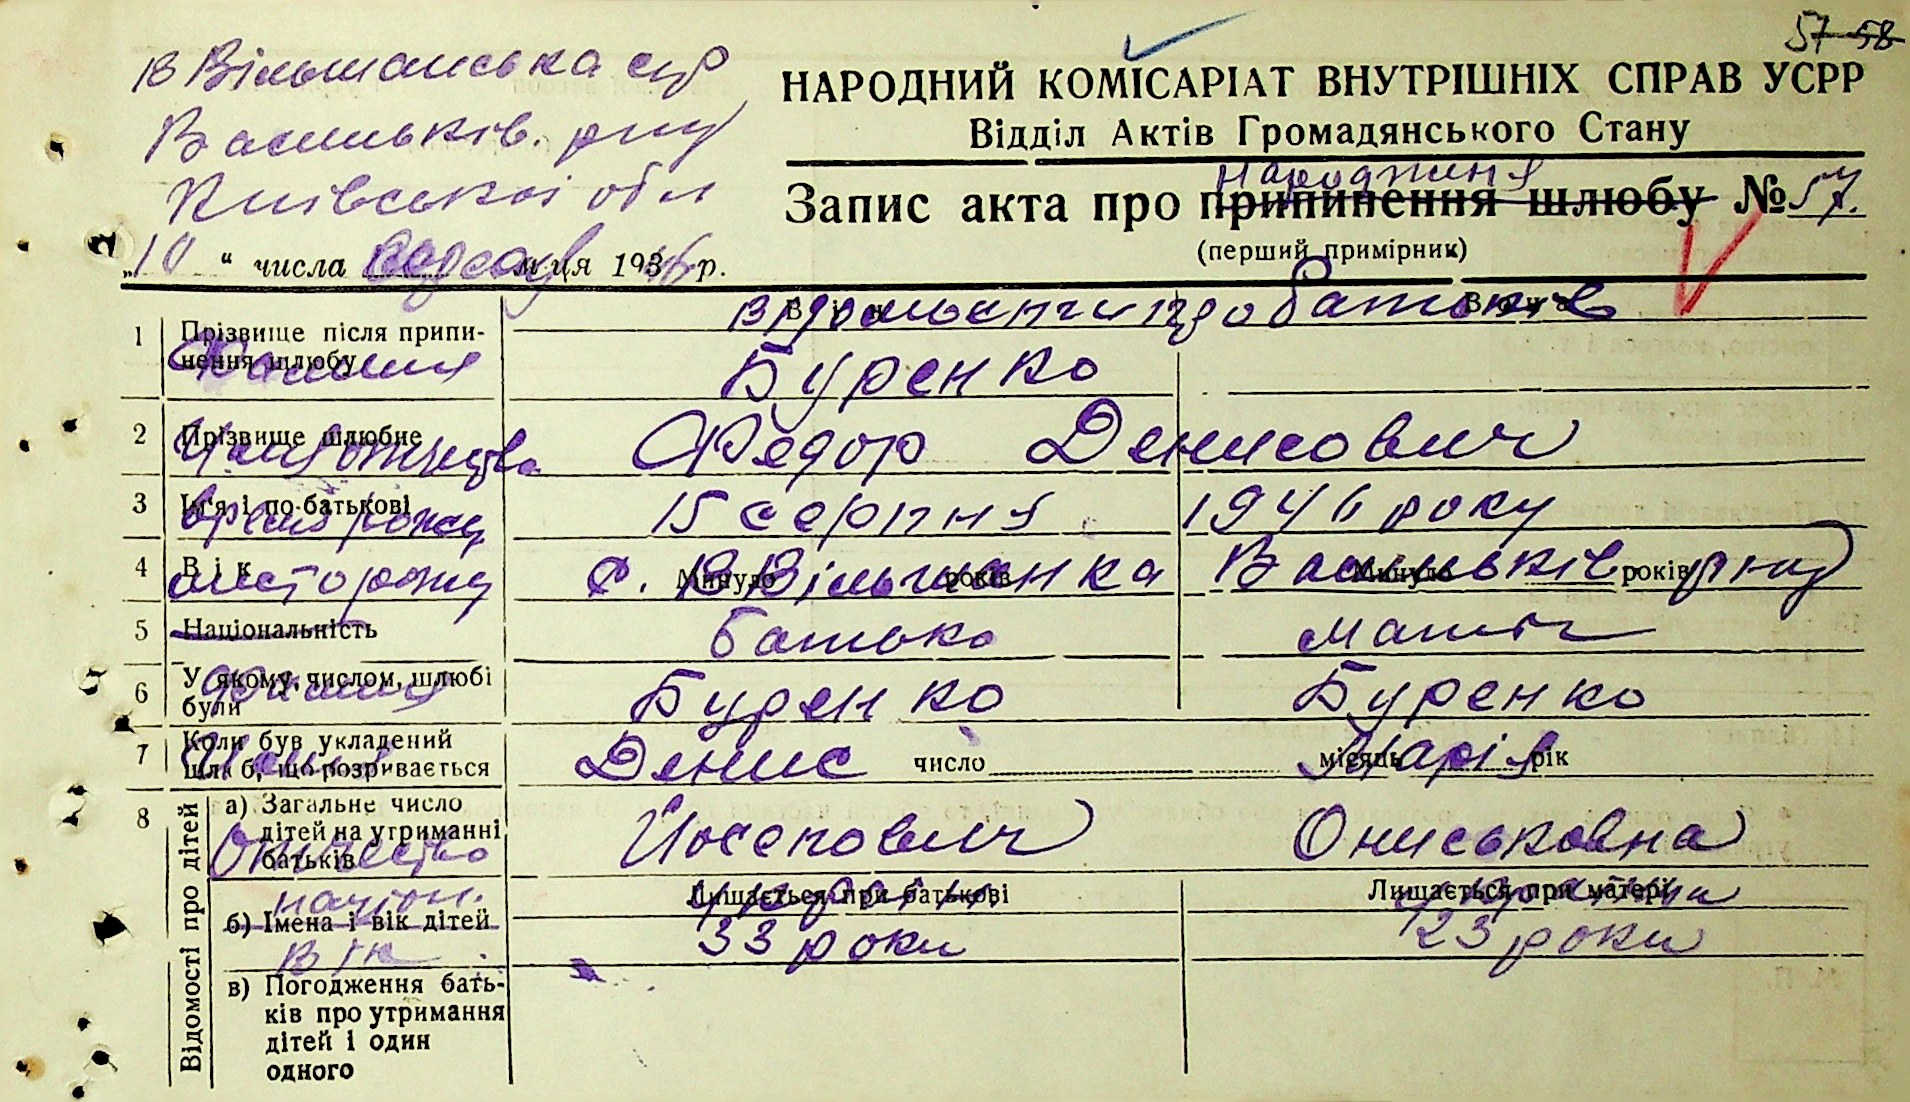 57-58
В Вільшанська с/р
Васильків. р-ну
Київської обл
НАРОДНИЙ КОМІСАРІАТ ВНУТРІШНІХ СПРАВ УСРР
Відділ Актів Громадянського Стану
народження
Запис акта про припинення шлюбу № 57.
(перший примірник)
„10“ числа м-ця 193 р.
Він Вона
батьків
1 Прізвище після припинення шлюбу
Буренко
2 Прізвище шлюбне
Федор Денисович
3 Ім'я і по-батькові
15 серпня 1946 року
4 Вік Минуло років Минуло років
с. В Вільшанка Васильків р-ну
5 Національність
батько мати
6 У якому, числом, шлюбі були
Буренко Буренко
7 Коли був укладений шлюб, що розривається число місяць рік
Денис Марія
Відомості про дітей
8 а) Загальне число дітей на утриманні батьків
Йосепович Ониськовна
Лишається при батькові Лишається при матері
націон.
б) Імена і вік дітей
вік 33 роки 23 роки
в) Погодження бать-
ків про утримання
дітей і один
одного